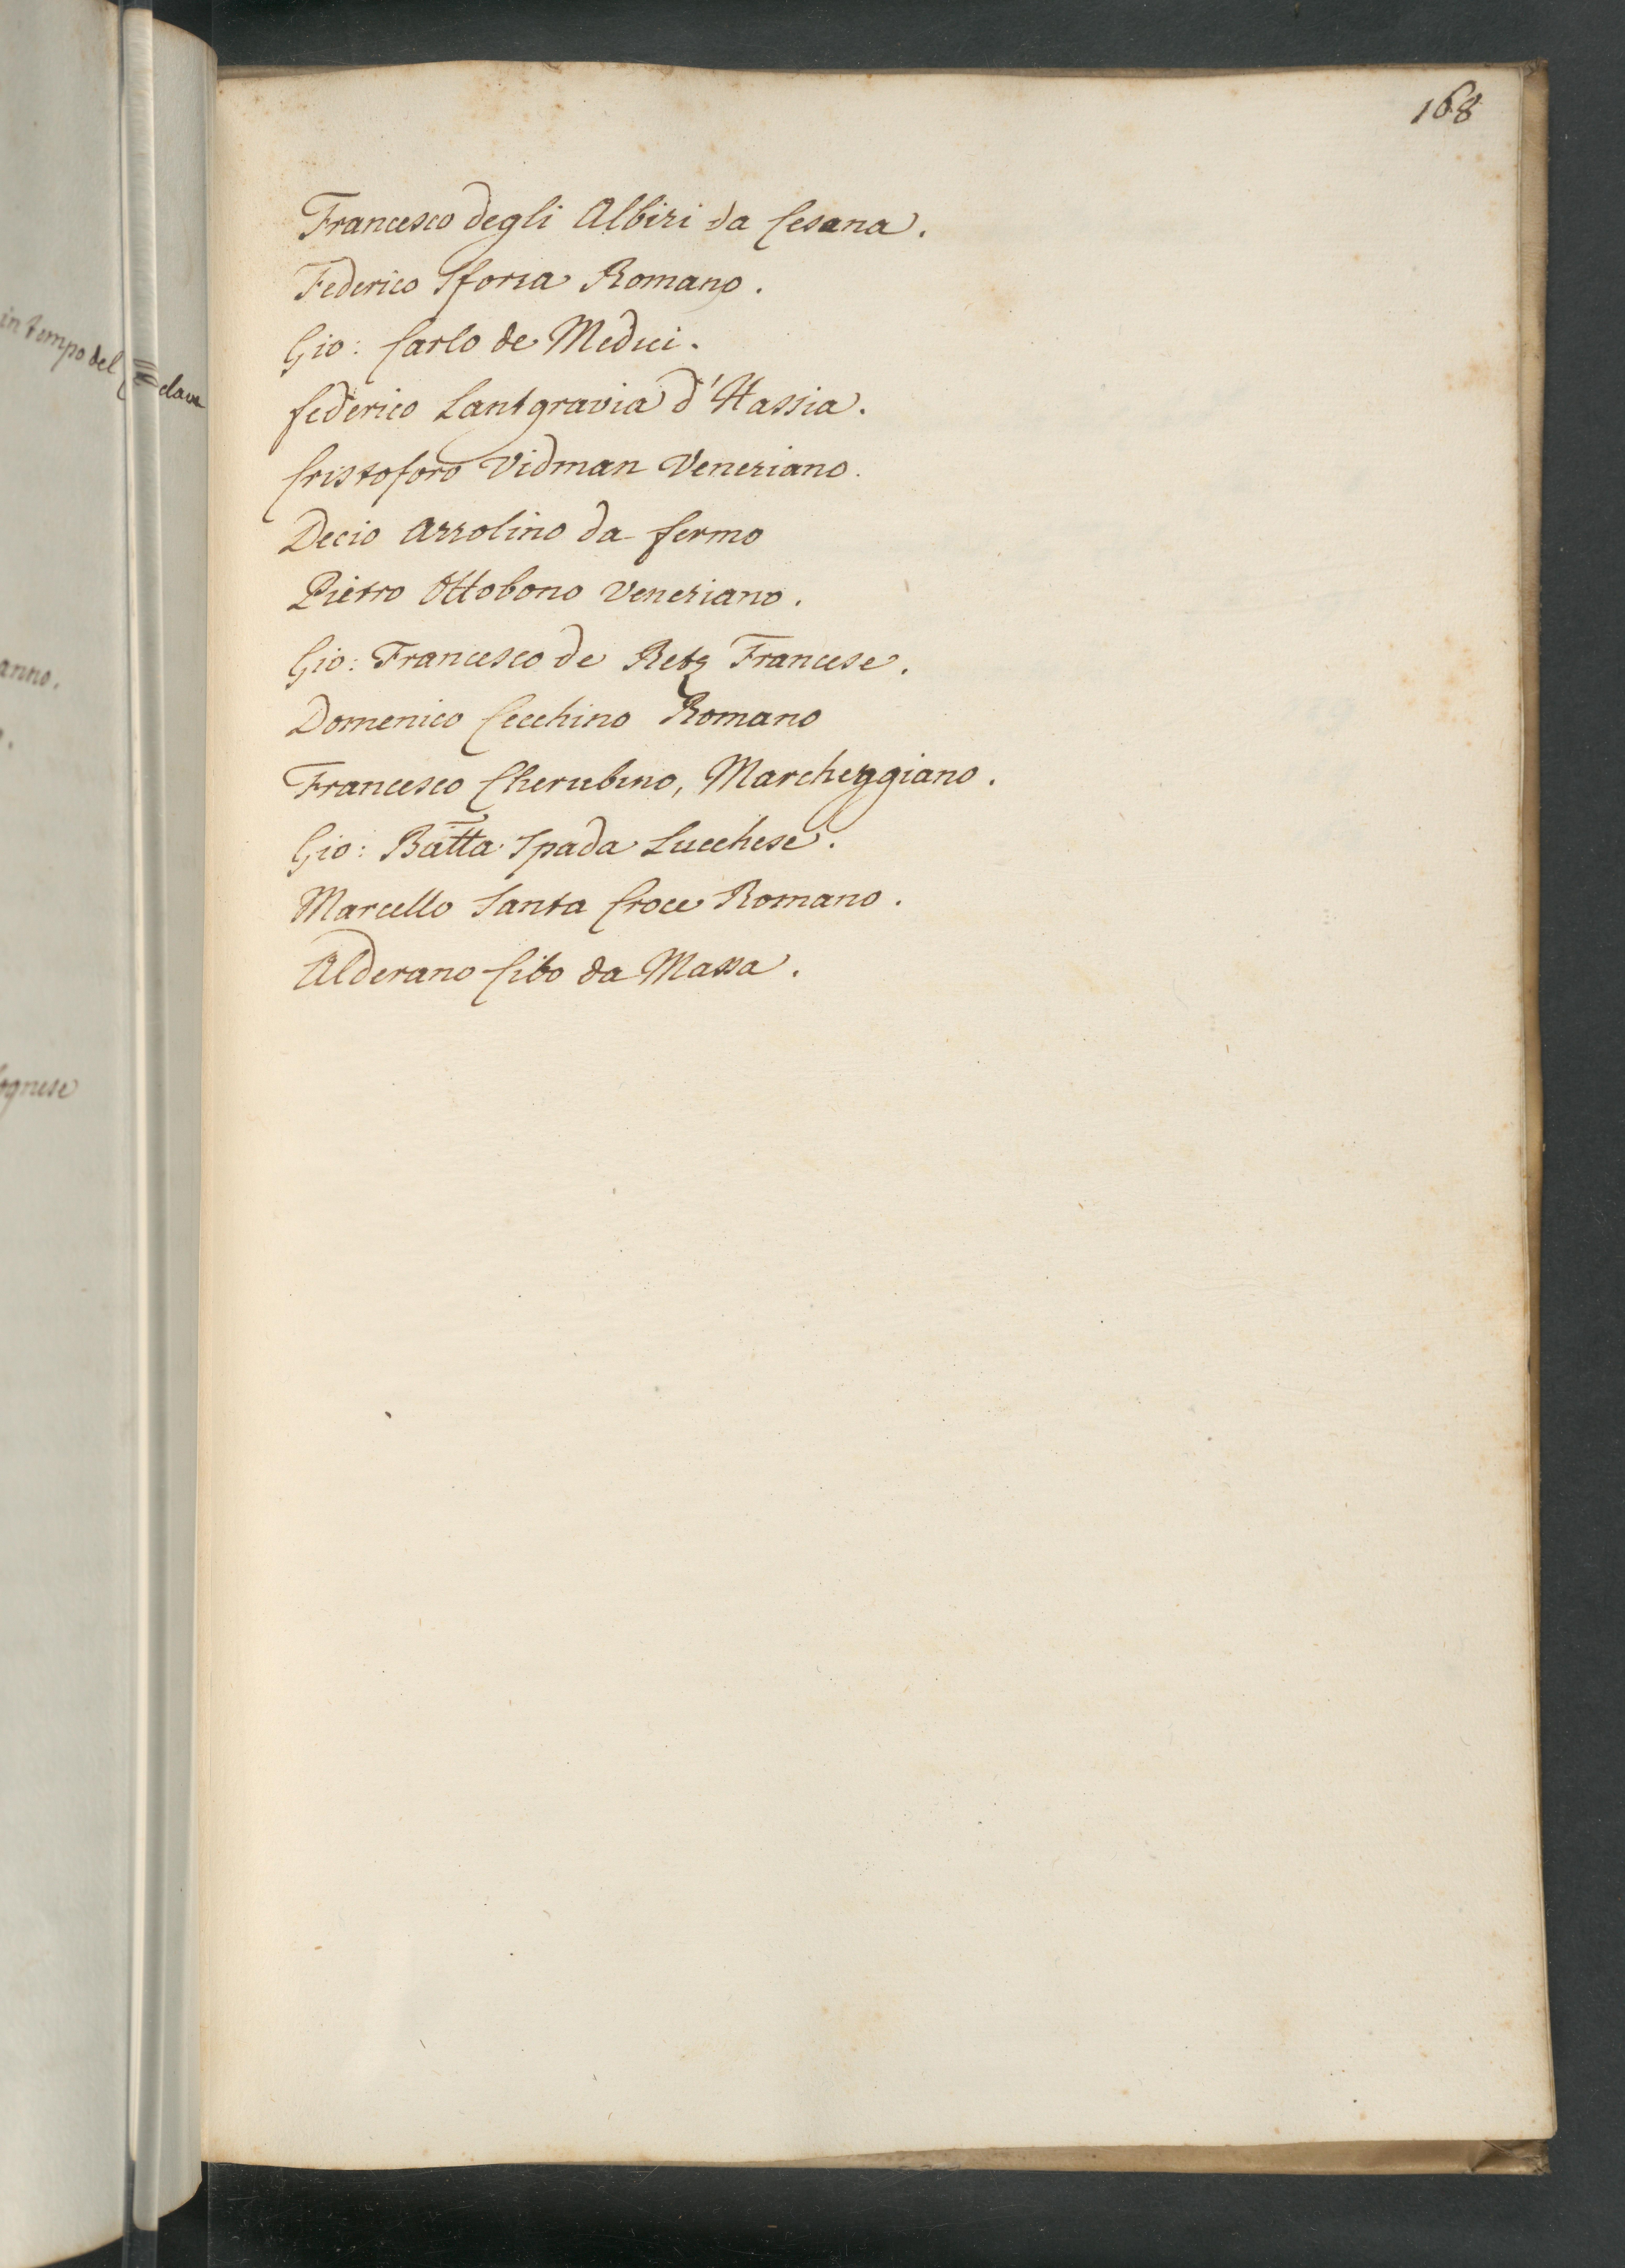 in tempo del
clave
anno.
ognese
168
Francesco degli Albizi da Cesana.
Federico Sforza Romano.
Gio: Carlo de Medici.
federico Lantgravia d'Hassia.
Cristoforo Vidman Veneziano.
Decio Azzolino da fermo
Pietro Ottobono Veneziano.
Gio: Francesco de Retz Francese.
Domenico Cecchino Romano
Francesco Cherubino, Marcheggiano.
Gio: Batta Spada Lucchese.
Marcello Santa Croce Romano.
Alderano Cibo da Massa.